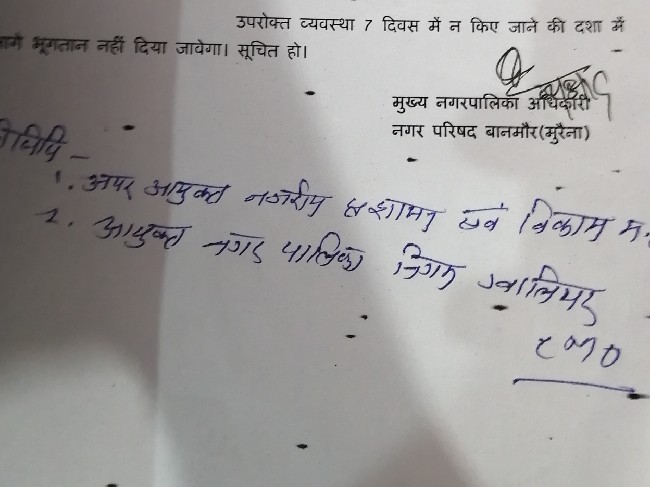 उपरोक्त व्यवस्था 7 दिवस में न किए जाने की दशा में
भूगतान नहीं दिया जावेगा। सूचित हो।
मुख्य नगरपालिका अधिकारी
नगर परिषद बानमौर(मुरैना)
1. अपर आयुक्त नगरीय प्रशासन एवं विकास म.
2. आयुक्त नगर पालिका निगम ग्वालियर